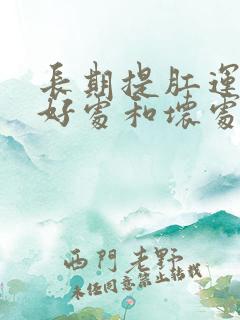 長期提肛運
好處和壞處
西門老野
未经同意禁止转载